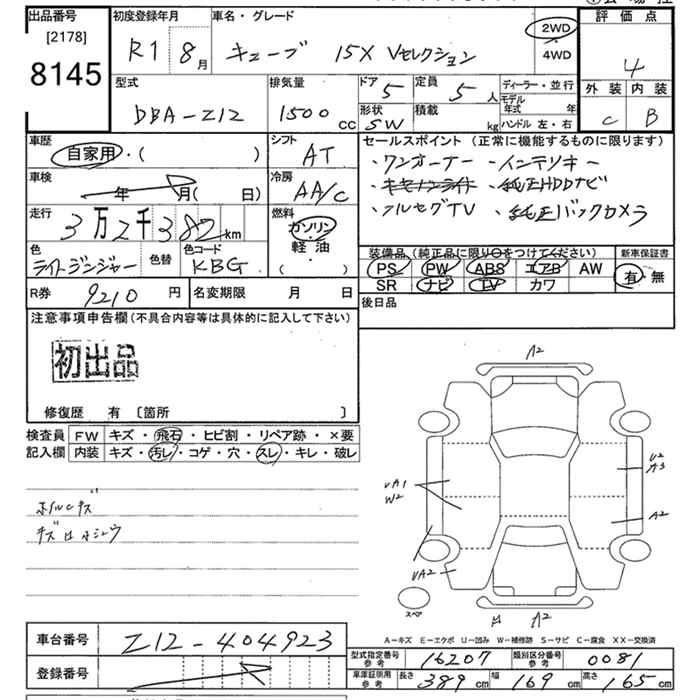 出品番号
[2178]
8145
初度登録年月
R1 8月
車名・グレード
キューブ 15X Vセレクション
2WD
4WD
評価点
4
外装 内装
C B
型式
DBA-Z12
排気量
1500cc
ドア
5
定員
5人
形状
SW
積載
kg
ディーラー・並行
モデル年式 年
ハンドル 左・右
車歴
自家用・( )
シフト
AT
車検
年 月( 日)
冷房
AA/C
走行
3万2千382km
燃料
ガソリン
軽油
( )
色
ライトジンジャー
色替
色コード
KBG
セールスポイント(正常に機能するものに限ります)
・ワンオーナー ・インテリキー
・キセノンライト ・純正HDDナビ
・フルセグTV ・純正バックカメラ
装備品(純正品に限り○をつけてください)
PS PW ABS エアB AW
SR ナビ TV カワ
新車保証書
有・無
R券 9210円
名変期限 月 日
後日品
注意事項申告欄(不具合内容等は具体的に記入して下さい)
初出品
修復歴 有 〔箇所 〕
検査員記入欄
FW キズ・飛石・ヒビ割・リペア跡・×要
内装 キズ・汚レ・コゲ・穴・スレ・キレ・破レ
ホイルCキズ
A2
U2
A3
UA1
W2
A2
UA2
スペア
A2
A-キズ E-エクボ U-凹み W-補修跡 S-サビ C-腐食 XX-交換済
車台番号 Z12-404923
登録番号
型式指定番号参考 16207
類別区分番号参考 0081
車庫証明用参考 長さ 389cm 幅 169cm 高さ 165cm